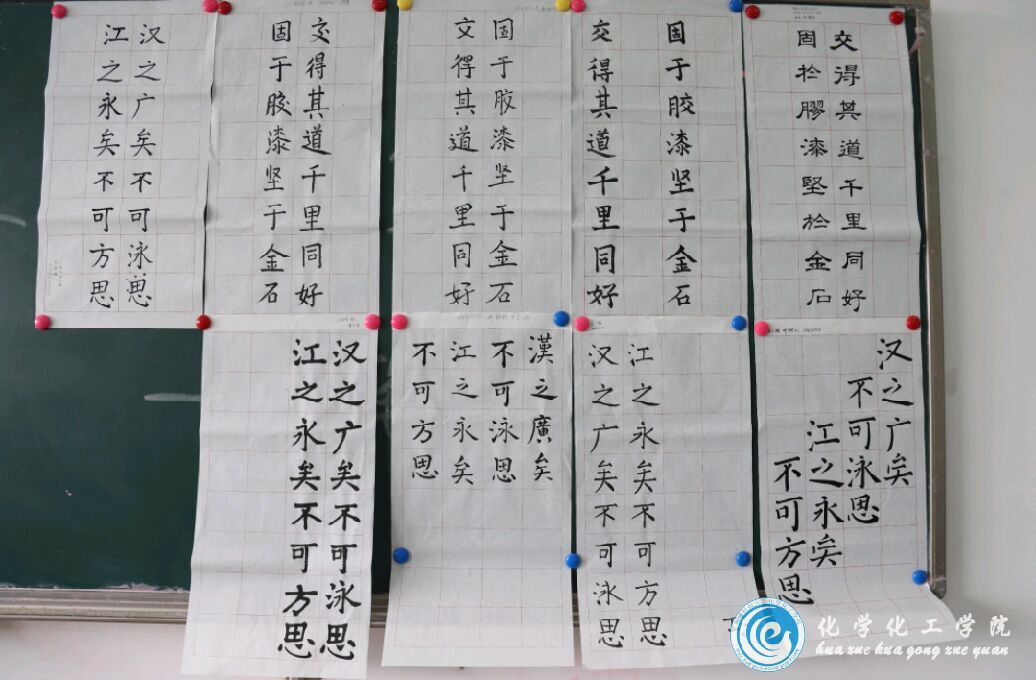 汉之广矣不可泳思
江之永矣不可方思
交得其道千里同好
固于胶漆坚于金石
交得其道千里同好
固于胶漆坚于金石
交得其道千里同好
固于胶漆坚于金石
交得其道千里同好
固於膠漆堅於金石
汉之广矣不可泳思
江之永矣不可方思
漢之廣矣
不可泳思
江之永矣
不可方思
汉之广矣不可泳思
江之永矣不可方思
汉之广矣
不可泳思
江之永矣
不可方思
化学化工学院
hua xue hua gong xue yuan